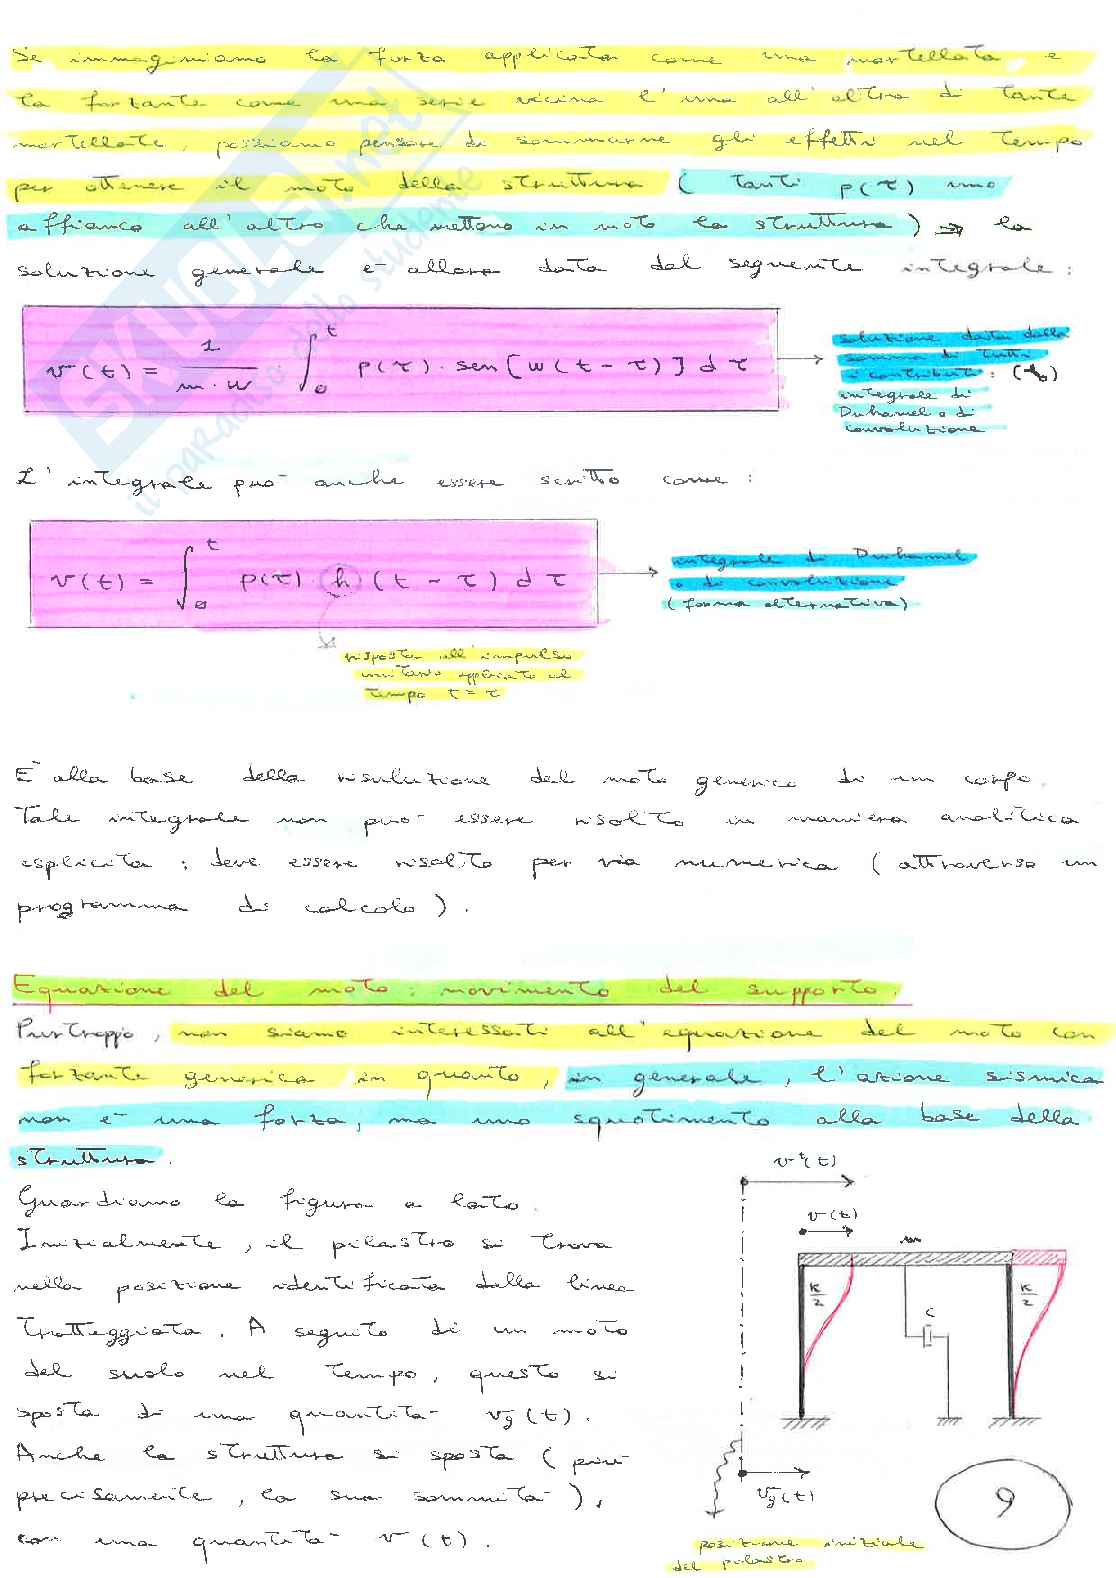 Se immaginiamo la forza applicata come una martellata e
la forzante come una serie vicina l'una all'altra di tante
martellate, possiamo pensare di sommarne gli effetti nel tempo
per ottenere il moto della struttura ( tanti p(τ) uno
affianco all'altro che mettono in moto la struttura) → la
soluzione generale è allora data dal seguente integrale:
v(t) = 1/(m·w) ∫₀ᵗ p(τ)· sen[w(t-τ)] dτ
soluzione data dalla
somma di tutti
i contributi: (t₀)
integrale di
Duhamel o di
convoluzione
L'integrale può anche essere scritto come:
v(t) = ∫₀ᵗ p(τ) h (t-τ) dτ
integrale di Duhamel
o di convoluzione
(forma alternativa)
risposta all'impulso
unitario applicato al
tempo t = τ
È alla base della risoluzione del moto generico di un corpo.
Tale integrale non può essere risolto in maniera analitica
esplicita; deve essere risolto per via numerica (attraverso un
programma di calcolo).
Equazione del moto: movimento del supporto.
Purtroppo, non siamo interessati all'equazione del moto con
forzante generica in quanto, in generale, l'azione sismica
non è una forza, ma uno squotimento alla base della
struttura.
Guardiamo la figura a lato.
Inizialmente, il pilastro si trova
nella posizione identificata dalla linea
tratteggiata. A seguito di un moto
del suolo nel tempo, questo si
sposta di una quantità v_g(t).
Anche la struttura si sposta (più
precisamente, la sua sommità),
con una quantità v(t).
vᵗ(t)
v(t)
m
K/2
K/2
c
v_g(t)
posizione iniziale
del pilastro
9
SKUOLA.net
il paradiso dello studente